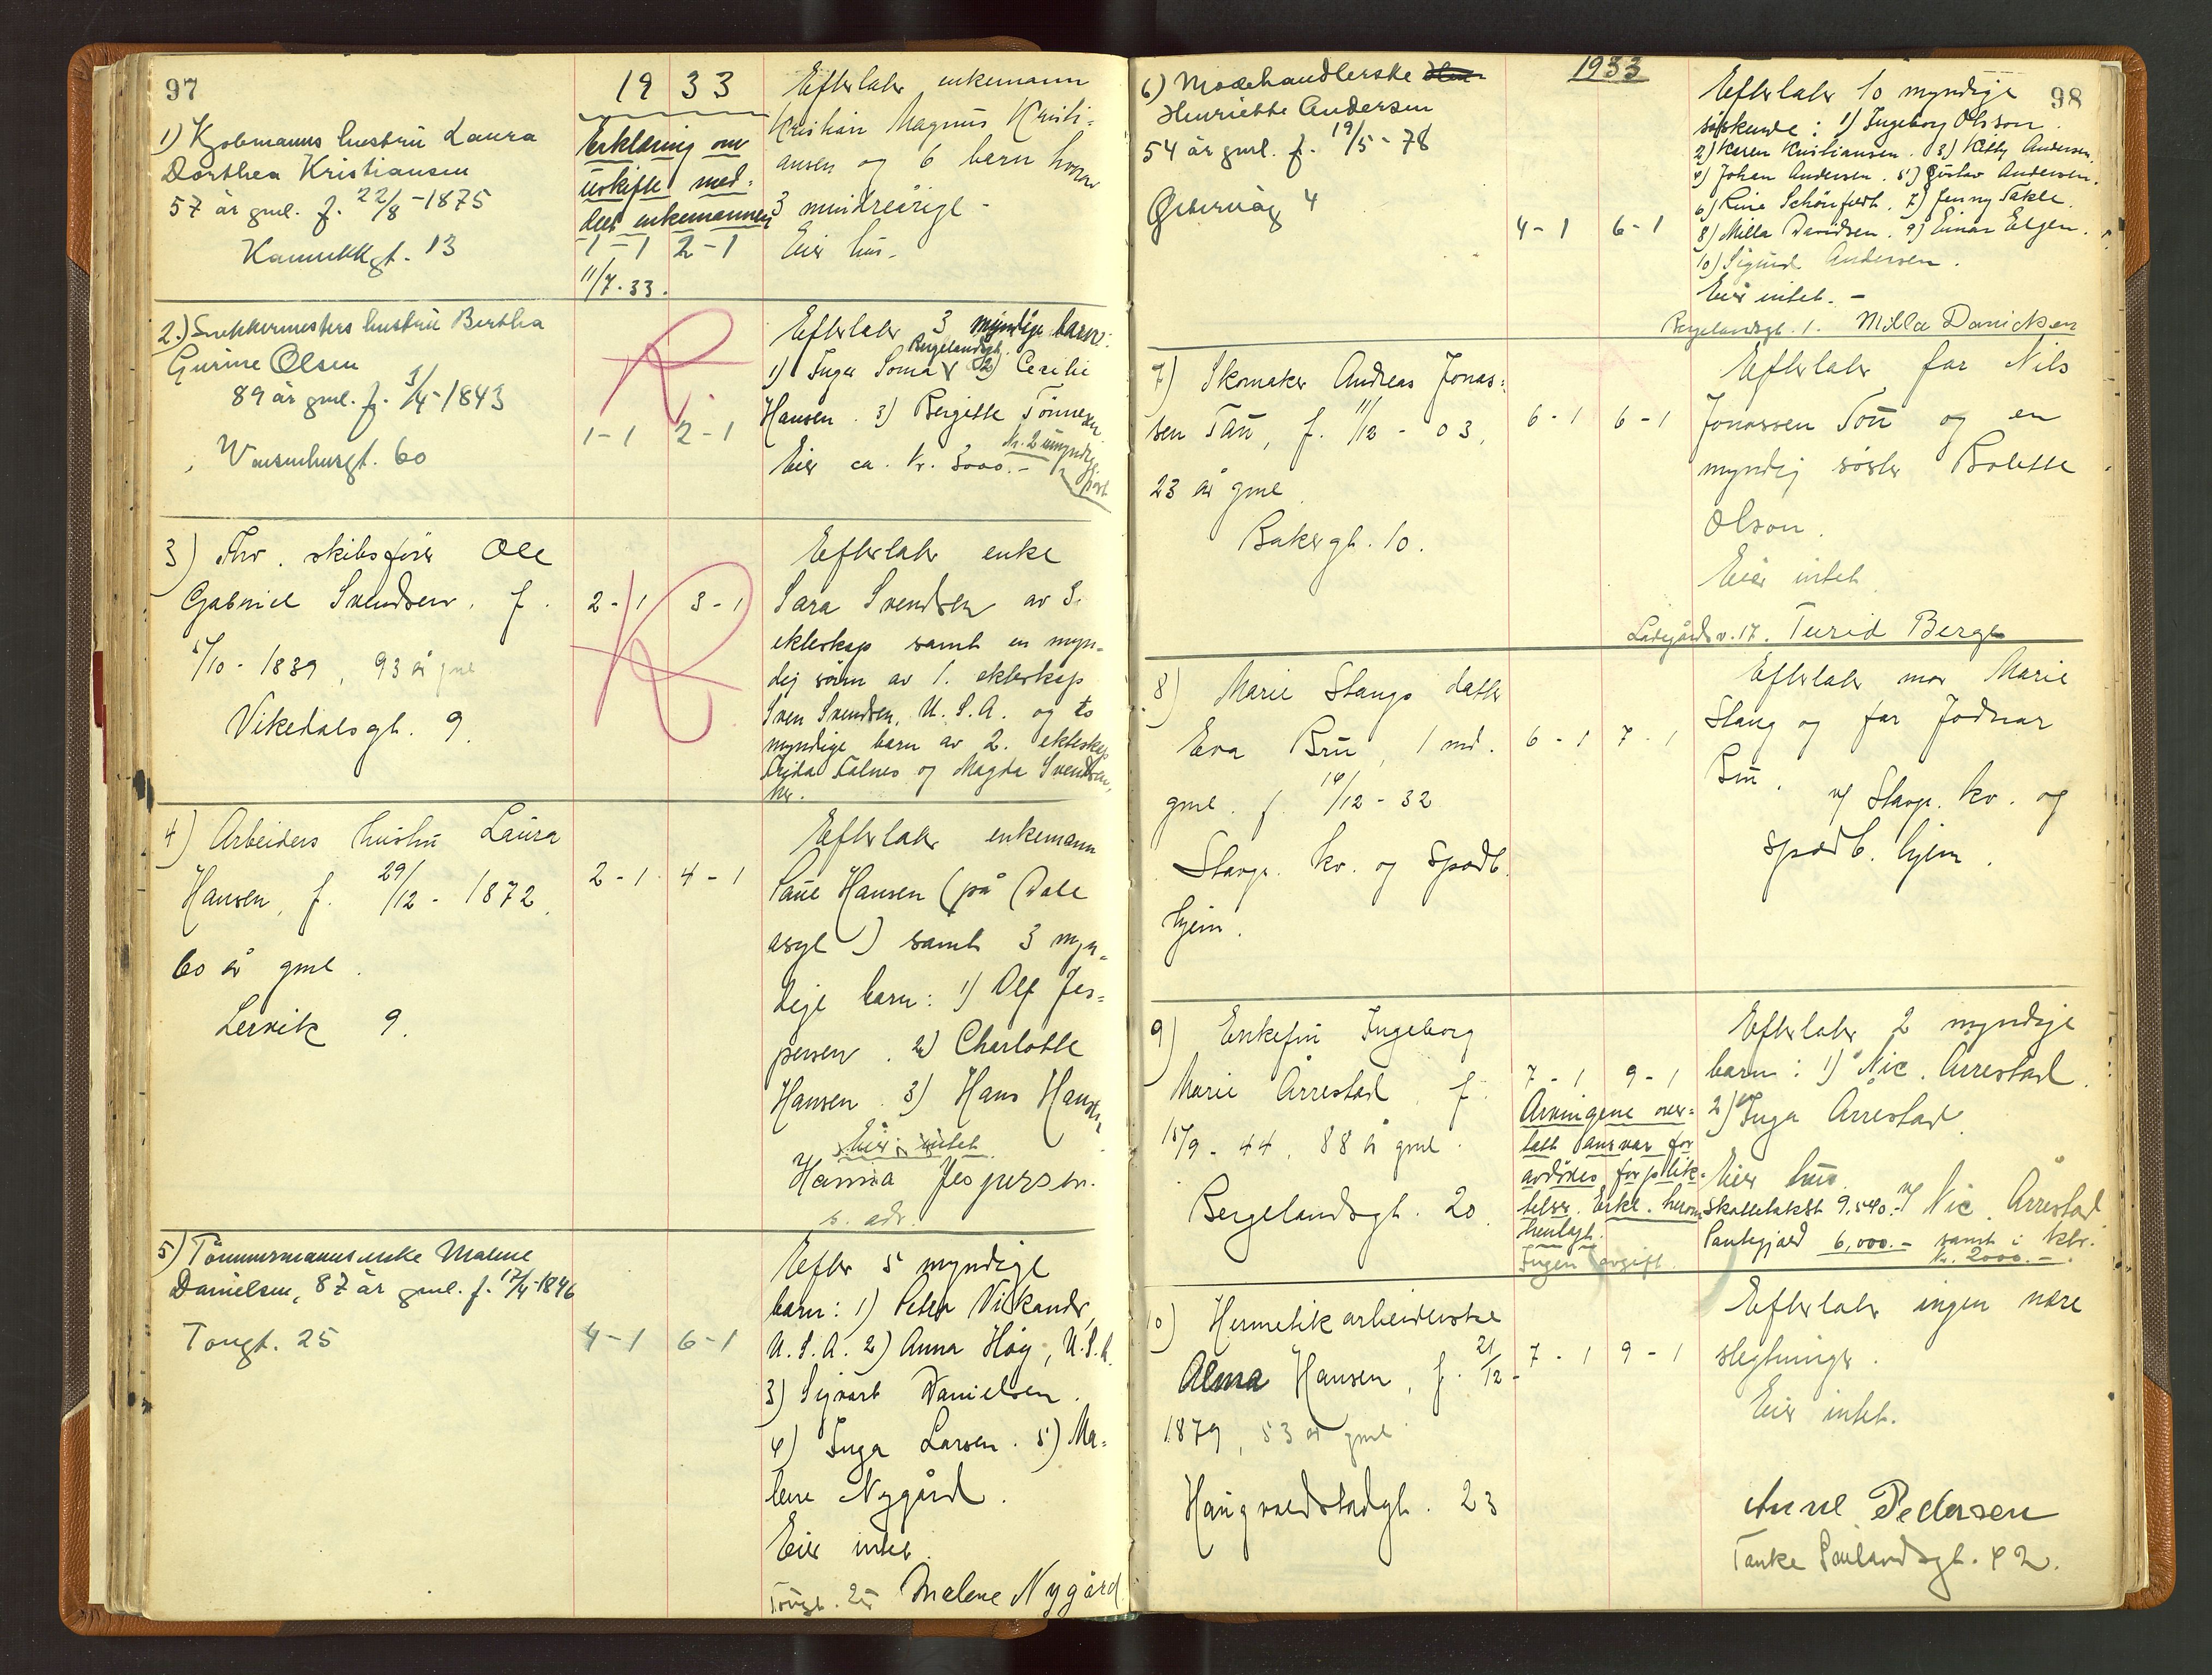 97
1933
1) Kjøbmanns hustru Laura
Dorthea Kristiansen
57 år gml. f. 22/8-1875
Kannikkgt. 13
Erklæring om
uskifte med-
delt enkemannen
1-1 2-1
11/7.33.
Efterlater enkemann
Kristian Magnus Kristi-
ansen og 6 barn hvorav
3 mindreårige -
Eier hus.
2.) Snekkermesters hustru Bertha
Gurine Olsen
89 år gml. f. 3/4-1843
Vaisenhusgt. 60
R.
1-1 2-1
Efterlater 3 myndige barn:
Bergelandsgt.
1) Inga Soma 2) Cecilie
Hansen. 3) Bergitte Tønnesen
Nr. 2 umyndig
Eier ca. kr. 3000.-
3) Fhv. skibsfører Ole
Gabriel Svendsen, f.
5/10-1839, 93 år gml
Vikedalsgt. 9.
2-1 3-1
R
Efterlater enke
Sara Svendsen av 3.
ekteskap samt en myn-
dig sønn av 1. ekteskap
Sven Svendsen, U.S.A. og to
myndige barn av 2. ekteskap
Frida Falnes og Magda Svendsen,
her.
4) Arbeiders hustru Laura
Hansen, f. 29/12-1872.
60 år gml.
Lervik 9.
2-1 4-1
Efterlater enkemann
Paul Hansen (på Dale
asyl) samt 3 myn-
dige barn: 1) Olf Jes-
persen. 2) Charlotte
Hansen. 3) Hans Hansen
Eier intet
Hanna Jespersen.
s. adr.
5) Tømmermannsenke Malene
Danielsen, 87 år gml. f. 17/4-1846
Tougt. 25
4-1 6-1
Efter 5 myndige
barn: 1) Petra Vikander,
U.S.A. 2) Anna Høy, U.S.A.
3) Sigvart Danielsen.
4) Inga Larsen. 5) Ma-
lene Nygård.
Eier intet.
Tougt. 25 Malene Nygård
98
1933
6) Motehandlerske
Henriette Andersen
54 år gml. f. 19/5-78
Østervåg 4
4-1 6-1
Efterlater 10 myndige
søskende: 1) Ingeborg Olsson.
2) Karen Kristiansen. 3) Kitty Andersen.
4) Johan Andersen. 5) Gustav Andersen.
6) Rina Schönfeldt. 7) Jenny Takle.
8) Milla Davidsen. 9) Einar Elgen.
10) Sigurd Andersen.
Eier intet. -
Bergelandsgt. 1. Milla Davidsen
7) Skomaker Andreas Jonas-
sen Tau, f. 11/12-03,
23 år gml.
Bakergt. 10.
6-1 6-1
Efterlater far Nils
Jonassen Tou og en
myndig søster Bolette
Olson.
Eier intet
Ladegårdsv. 17. Turid Berge
8) Marie Stangs datter
Eva Bru, 1 md.
gml. f. 16/12-32
Stavgr. kv. og Spedb.
hjem.
6-1 7-1
Efterlater mor Marie
Stang og far Jodnar
Bru.
v/ Stavgr. kv. og
spedb. hjem.
9) Enkefru Ingeborg
Marie Årrestad f.
15/9-44, 88 år gml.
Bergelandsgt. 20.
7-1 9-1
Arvingene over-
tatt ansvar for
avdødes forplik-
telser. Erkl. herom
henlagt.
Ingen avgift.
Efterlater 2 myndige
barn: 1) Nic. Årrestad.
2) Inga Årrestad.
Eier hus.
Skattetakst 9,590.- v/ Nic. Årrestad
Pantegjæld 6,000.- samt i ktr.
kr. 2000.-
10) Hermetikarbeiderske
Alma Hansen, f. 21/12-
1879, 53 år gml
Haugvaldstadgt. 23
7-1 9-1
Efterlater ingen nære
slegtninger.
Eier intet.
Anne Pedersen
Tanke Svilandsgt. 42.